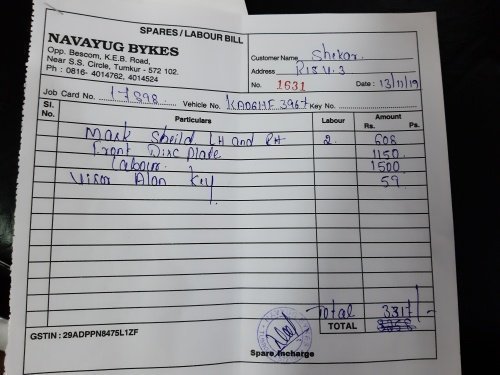 SPARES / LABOUR BILL
NAVAYUG BYKES
Opp. Bescom, K.E.B. Road,
Near S.S. Circle, Tumkur - 572 102.
Ph : 0816- 4014762, 4014524
Customer Name Shekar
Address R15 V.3
No. 1631 Date : 13/11/19
Job Card No. 17898 Vehicle No. KA06HF 3967 Key No.
Sl. No. Particulars Labour Amount Rs. Ps.
Mask Sheild LH and RH 2 608
Front Disc plate 1150
Labour 1500
Visor Alan Key 59
Total 3317/-
TOTAL
GSTIN : 29ADPPN8475L1ZF
Spare Incharge